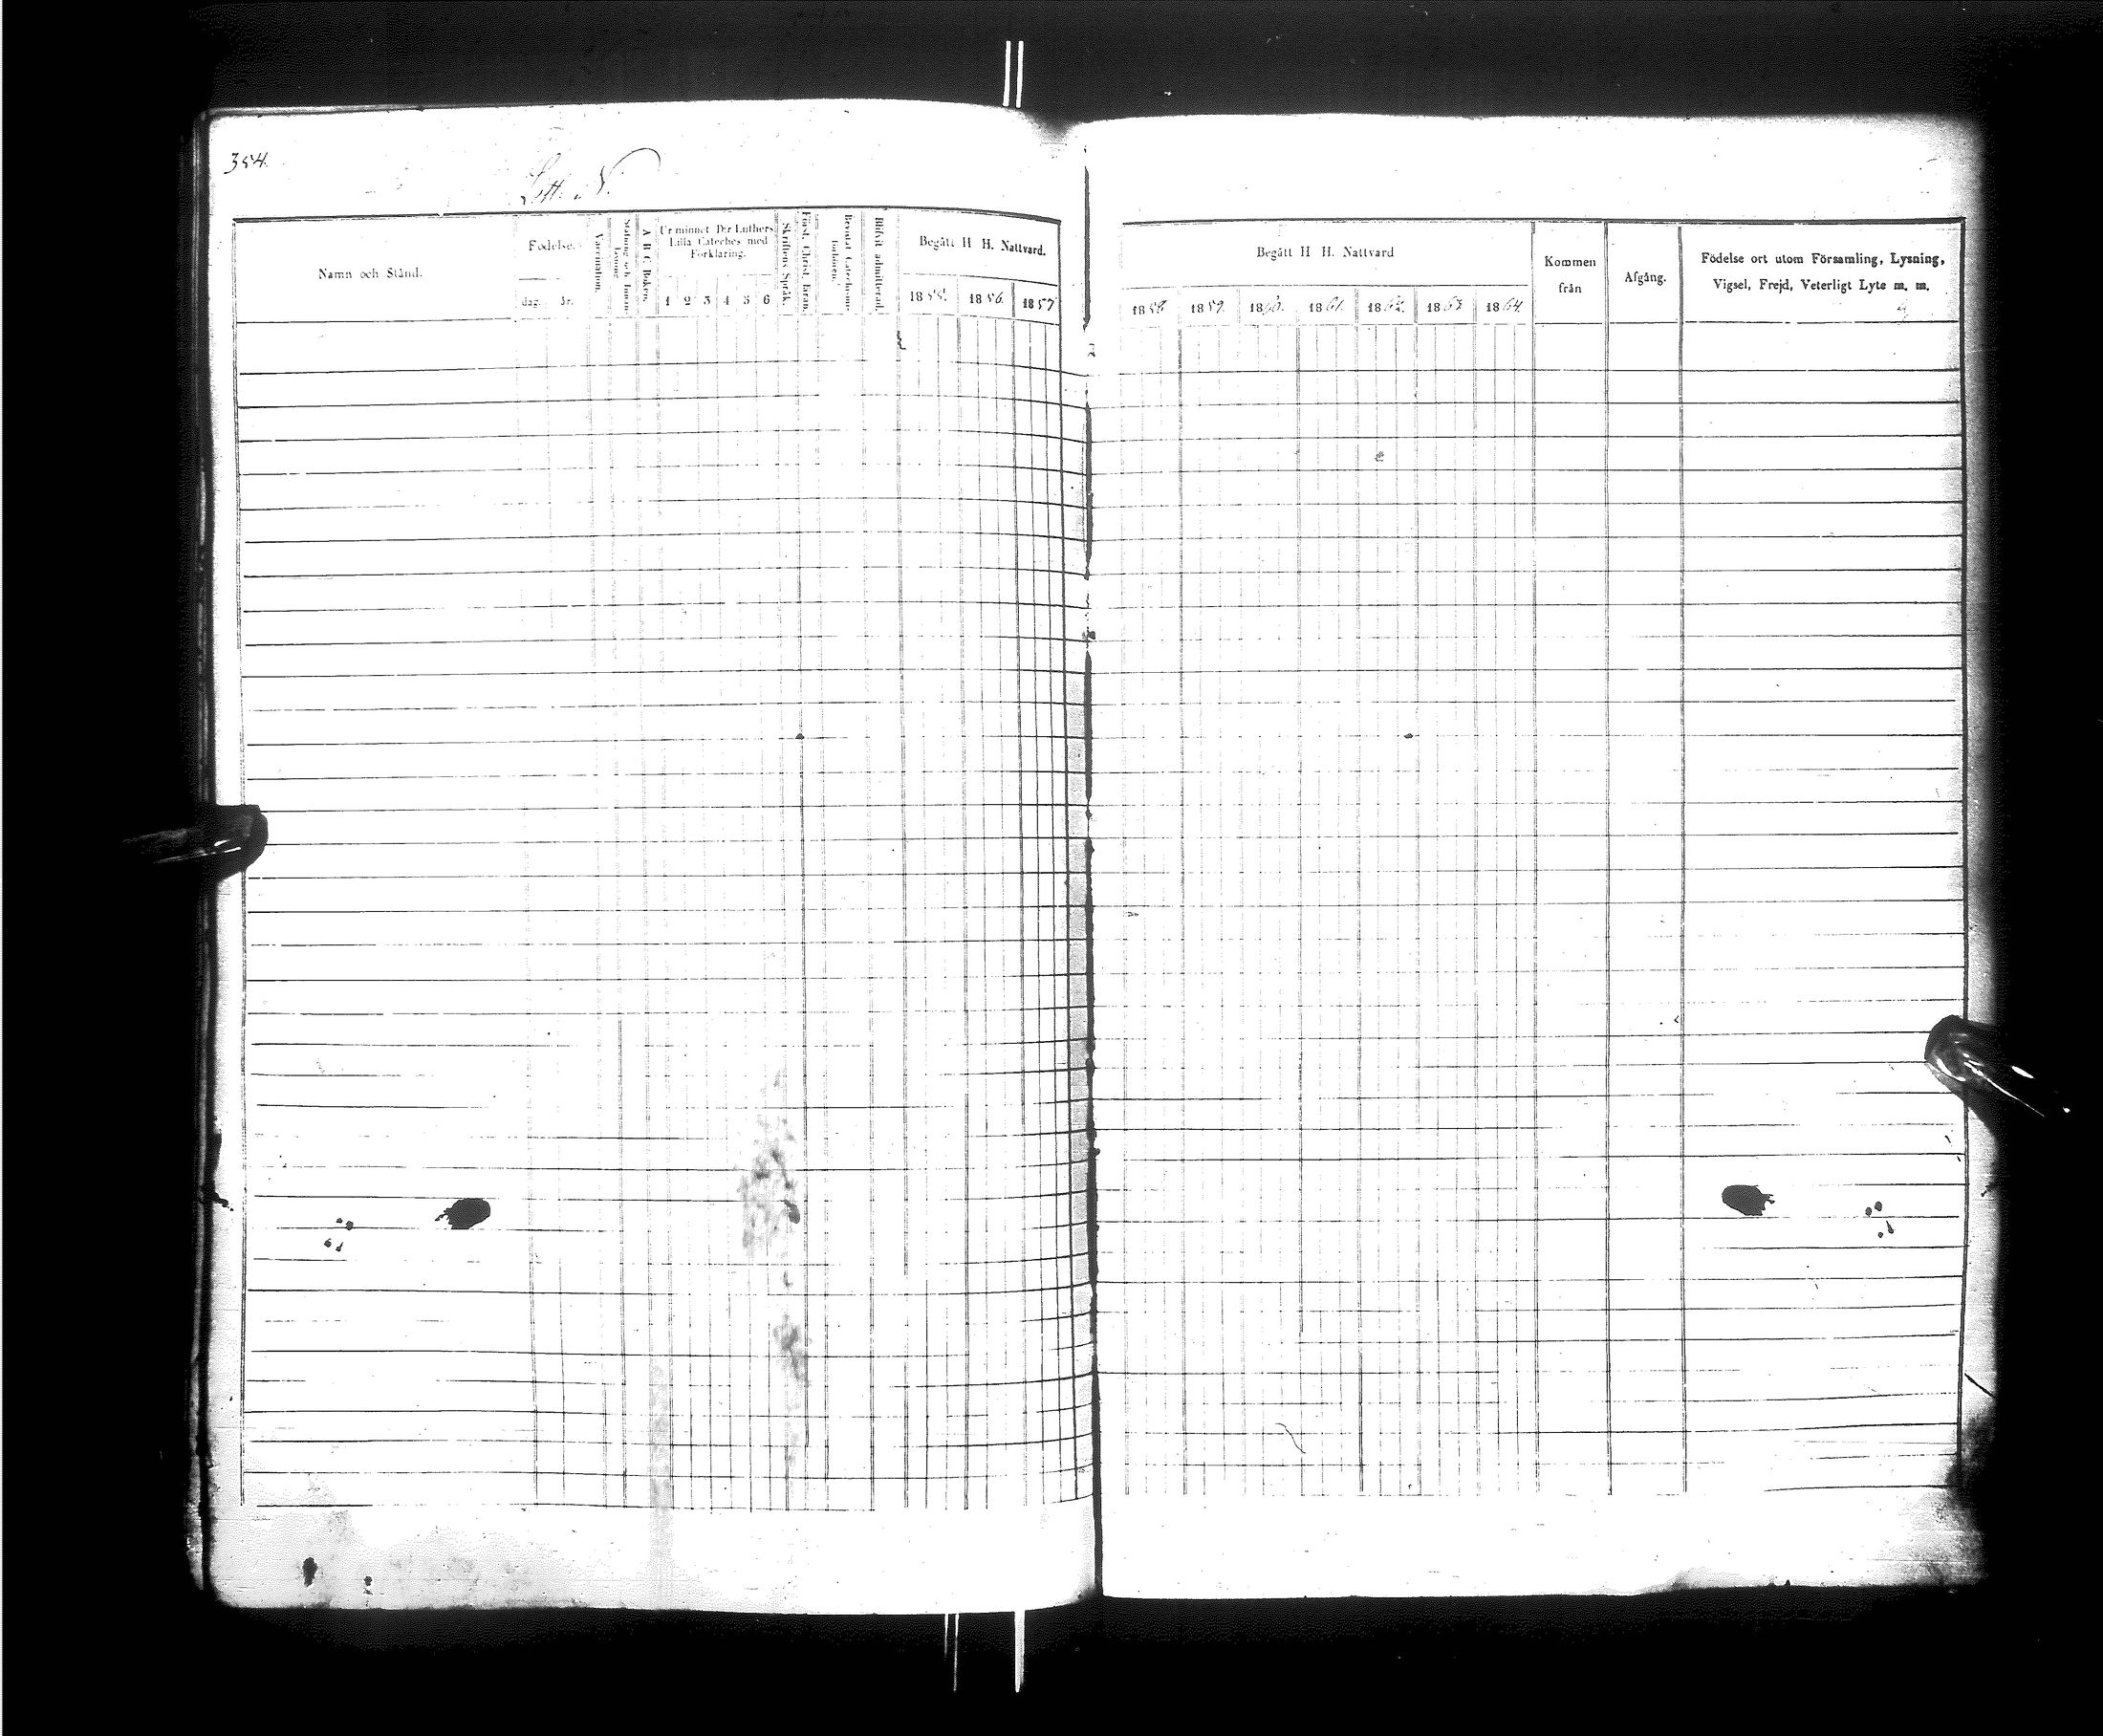 354.
Litt. N.
Namn och Stånd.
Födelse.
dag.
år.
A B C Boken.
Ur minnet D:r Luthers
Lilla Cateches med
Förklaring.
1 2 3 4 5 6
Skriftens Språk.
Blifvit admitterad.
Begått H H. Nattvard.
1855. 1856. 1857
Begått H H. Nattvard
1858. 1859. 1860. 1861. 1862. 1863 1864.
Kommen
från
Afgång.
Födelse ort utom Församling, Lysning,
Vigsel, Frejd, Veterligt Lyte m. m.